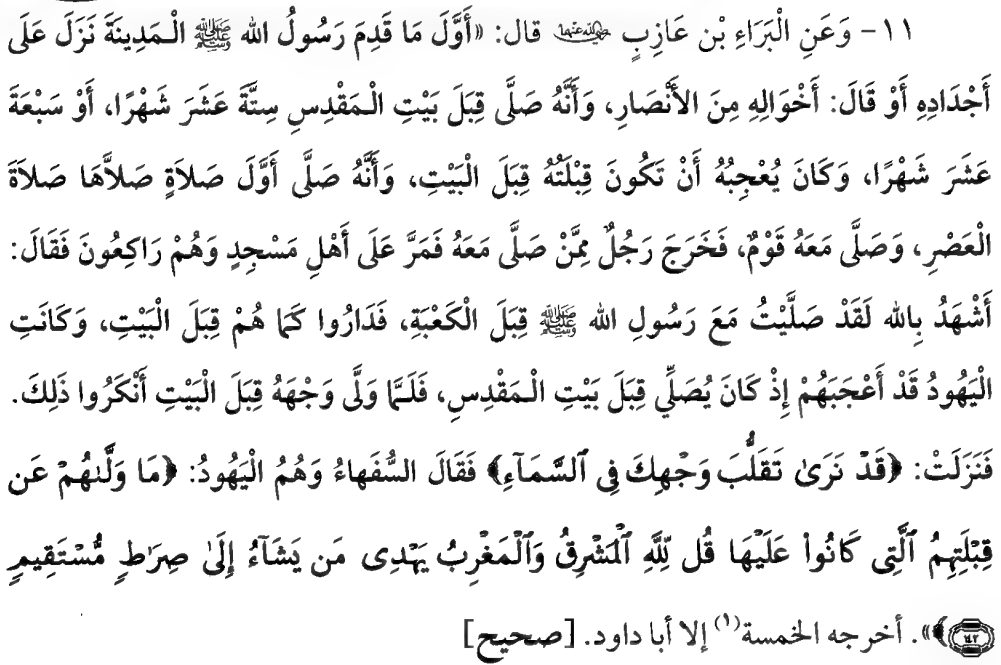 ١١- وَعَنِ الْبَرَاءِ بْن عَازِبٍ رضي الله عنهما قال: «أَوَّلَ مَا قَدِمَ رَسُولُ الله ﷺ الْـمَدِينَةَ نَزَلَ عَلَى
أَجْدَادِهِ أَوْ قَالَ: أَخْوَالِهِ مِنَ الأَنْصَارِ، وَأَنَّهُ صَلَّى قِبَلَ بَيْتِ الْـمَقْدِسِ سِتَّةَ عَشَرَ شَهْرًا، أَوْ سَبْعَةَ
عَشَرَ شَهْرًا، وَكَانَ يُعْجِبُهُ أَنْ تَكُونَ قِبْلَتُهُ قِبَلَ الْبَيْتِ، وَأَنَّهُ صَلَّى أَوَّلَ صَلاَةٍ صَلاَّهَا صَلاَةَ
الْعَصْرِ، وَصَلَّى مَعَهُ قَوْمٌ، فَخَرَجَ رَجُلٌ مِمَّنْ صَلَّى مَعَهُ فَمَرَّ عَلَى أَهْلِ مَسْجِدٍ وَهُمْ رَاكِعُونَ فَقَالَ:
أَشْهَدُ بِالله لَقَدْ صَلَّيْتُ مَعَ رَسُولِ الله ﷺ قِبَلَ الْكَعْبَةِ، فَدَارُوا كَمَا هُمْ قِبَلَ الْبَيْتِ، وَكَانَتِ
الْيَهُودُ قَدْ أَعْجَبَهُمْ إِذْ كَانَ يُصَلِّي قِبَلَ بَيْتِ الْـمَقْدِسِ، فَلَـمَّا وَلَّى وَجْهَهُ قِبَلَ الْبَيْتِ أَنْكَرُوا ذَلِكَ.
فَنَزَلَتْ: ﴿قَدْ نَرَىٰ تَقَلُّبَ وَجْهِكَ فِى ٱلسَّمَآءِ﴾ فَقَالَ السُّفَهَاءُ وَهُمُ الْيَهُودُ: ﴿مَا وَلَّىٰهُمْ عَن
قِبْلَتِهِمُ ٱلَّتِى كَانُوا۟ عَلَيْهَا قُل لِّلَّهِ ٱلْمَشْرِقُ وَٱلْمَغْرِبُ يَهْدِى مَن يَشَآءُ إِلَىٰ صِرَٰطٍ مُّسْتَقِيمٍ
١٤٢﴾». أخرجه الخمسة(١) إلا أبا داود. [صحيح]